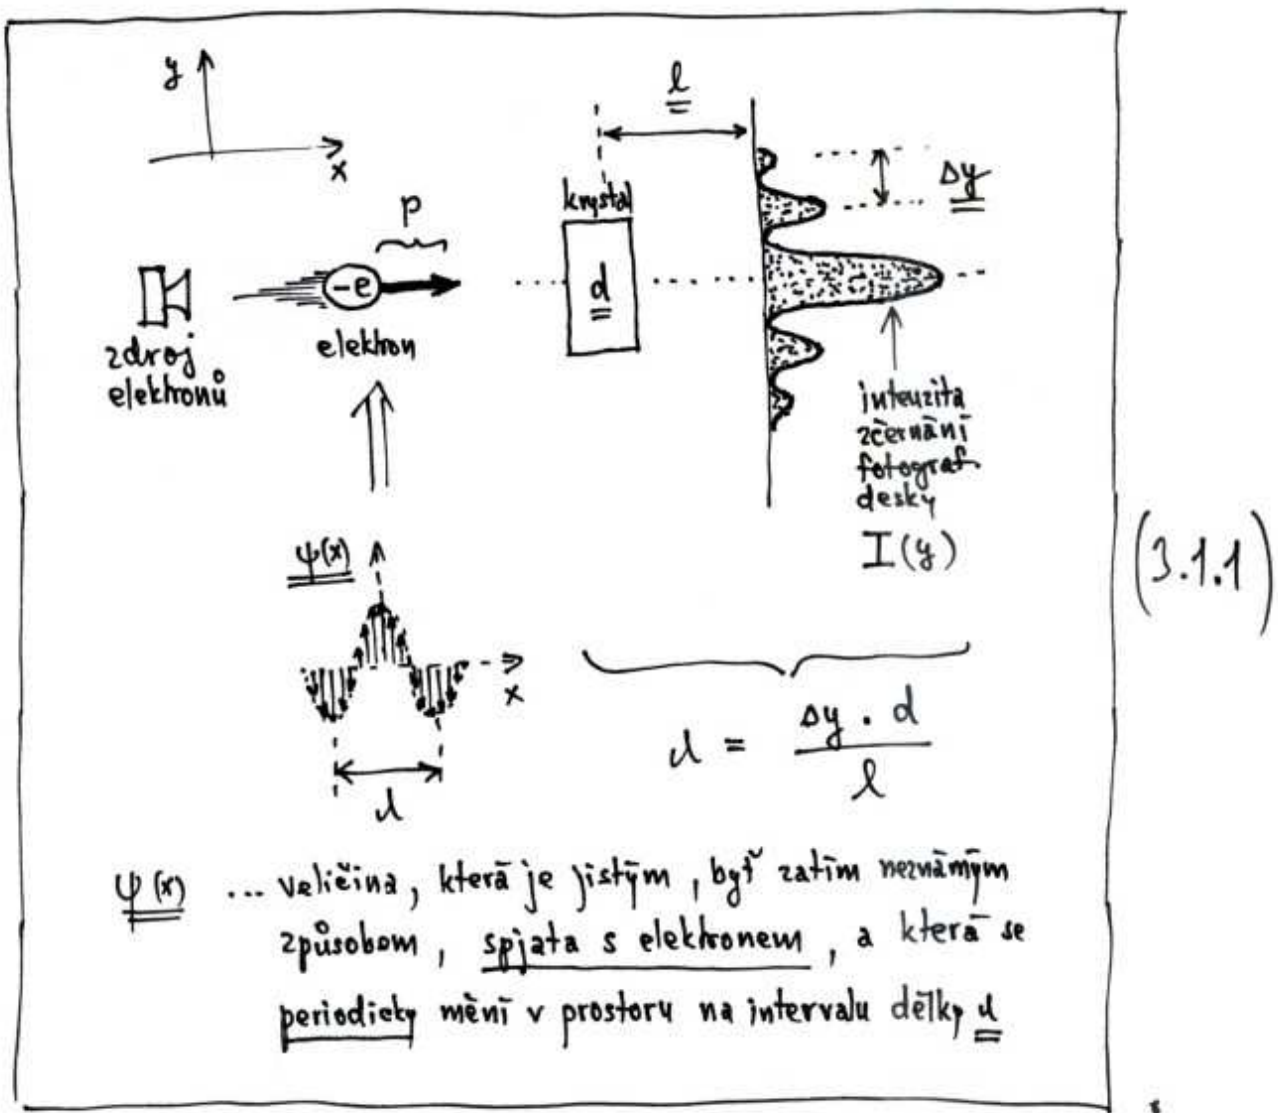 y
x
l
Δy
p
krystal
-e
d
zdroj
elektronů
elektron
intenzita
zčernání
fotograf.
desky
I(y)
(3.1.1)
ψ(x)
x
λ
λ = Δy . d / l
ψ(x) ... veličina, která je jistým, byť zatím neznámým
způsobem, spjata s elektronem, a která se
periodicky mění v prostoru na intervalu délky λ